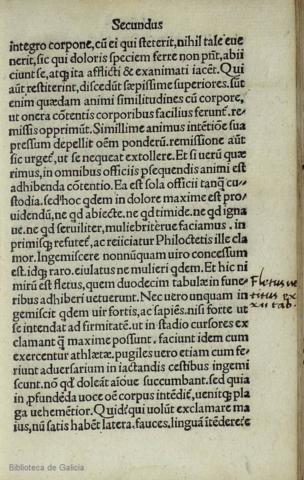 Secundus
integro corpore, cũ ei qui steterit, nihil tale eue
nerit, sic qui doloris speciem ferre nõ pñt, abii
ciunt se, atq̃ ita afflicti & exanimati iacẽt. Qui
aũt restiterint, discedũt sæpissime superiores. sũt
enim quædam animi similitudines cũ corpore,
ut onera cõtentis corporibus facilius ferunt. re⸗
missis opprimũt. Simillime animus intẽtiõe sua
pressum depellit oẽm ponderũ. remissiõe aũt
sic urgeť, ut se nequeat extollere. Et si uerũ quæ
rimus, in omnibus officiis psequendis animi est
adhibenda cõtentio. Ea est sola officii tanq̃ cu⸗
stodia. sed hoc qdem in dolore maxime est pro⸗
uidendũ, ne qd abiecte. ne qd timide. ne qd igna
ue. ne qd seruiliter, muliebriter ue faciamus. in⸗
primisq; refuteť, ac reiiciatur Philoctetis ille cla
mor. Ingemiscere nonnũquam uiro concessum
est. idq; raro. eiulatus ne mulieri qdem. Et hic ni
mirũ est fletus, quem duodecim tabulæ in fune⸗
ribus adhiberi uetuerunt. Nec uero unquam in
gemiscit qdem uir fortis, ac sapiẽs. nisi forte ut
se intendat ad firmitatẽ. ut in stadio cursores ex
clamant q̃ maxime possunt. faciunt idem cum
exercentur athlætæ. pugiles uero etiam cum fe⸗
riunt aduersarium in iactandis cestibus ingemi
scunt. nõ qd doleãt aĩoue succumbant. sed quia
in pfundẽda uoce oẽ corpus intẽdiť, uenitq; pla
ga uehemẽtior. Quid? qui uolũt exclamare ma
ius, nũ satis habẽt latera. fauces. linguã ĩtẽdere?
Fletus ue
titus ex
xii tab.
Biblioteca de Galicia